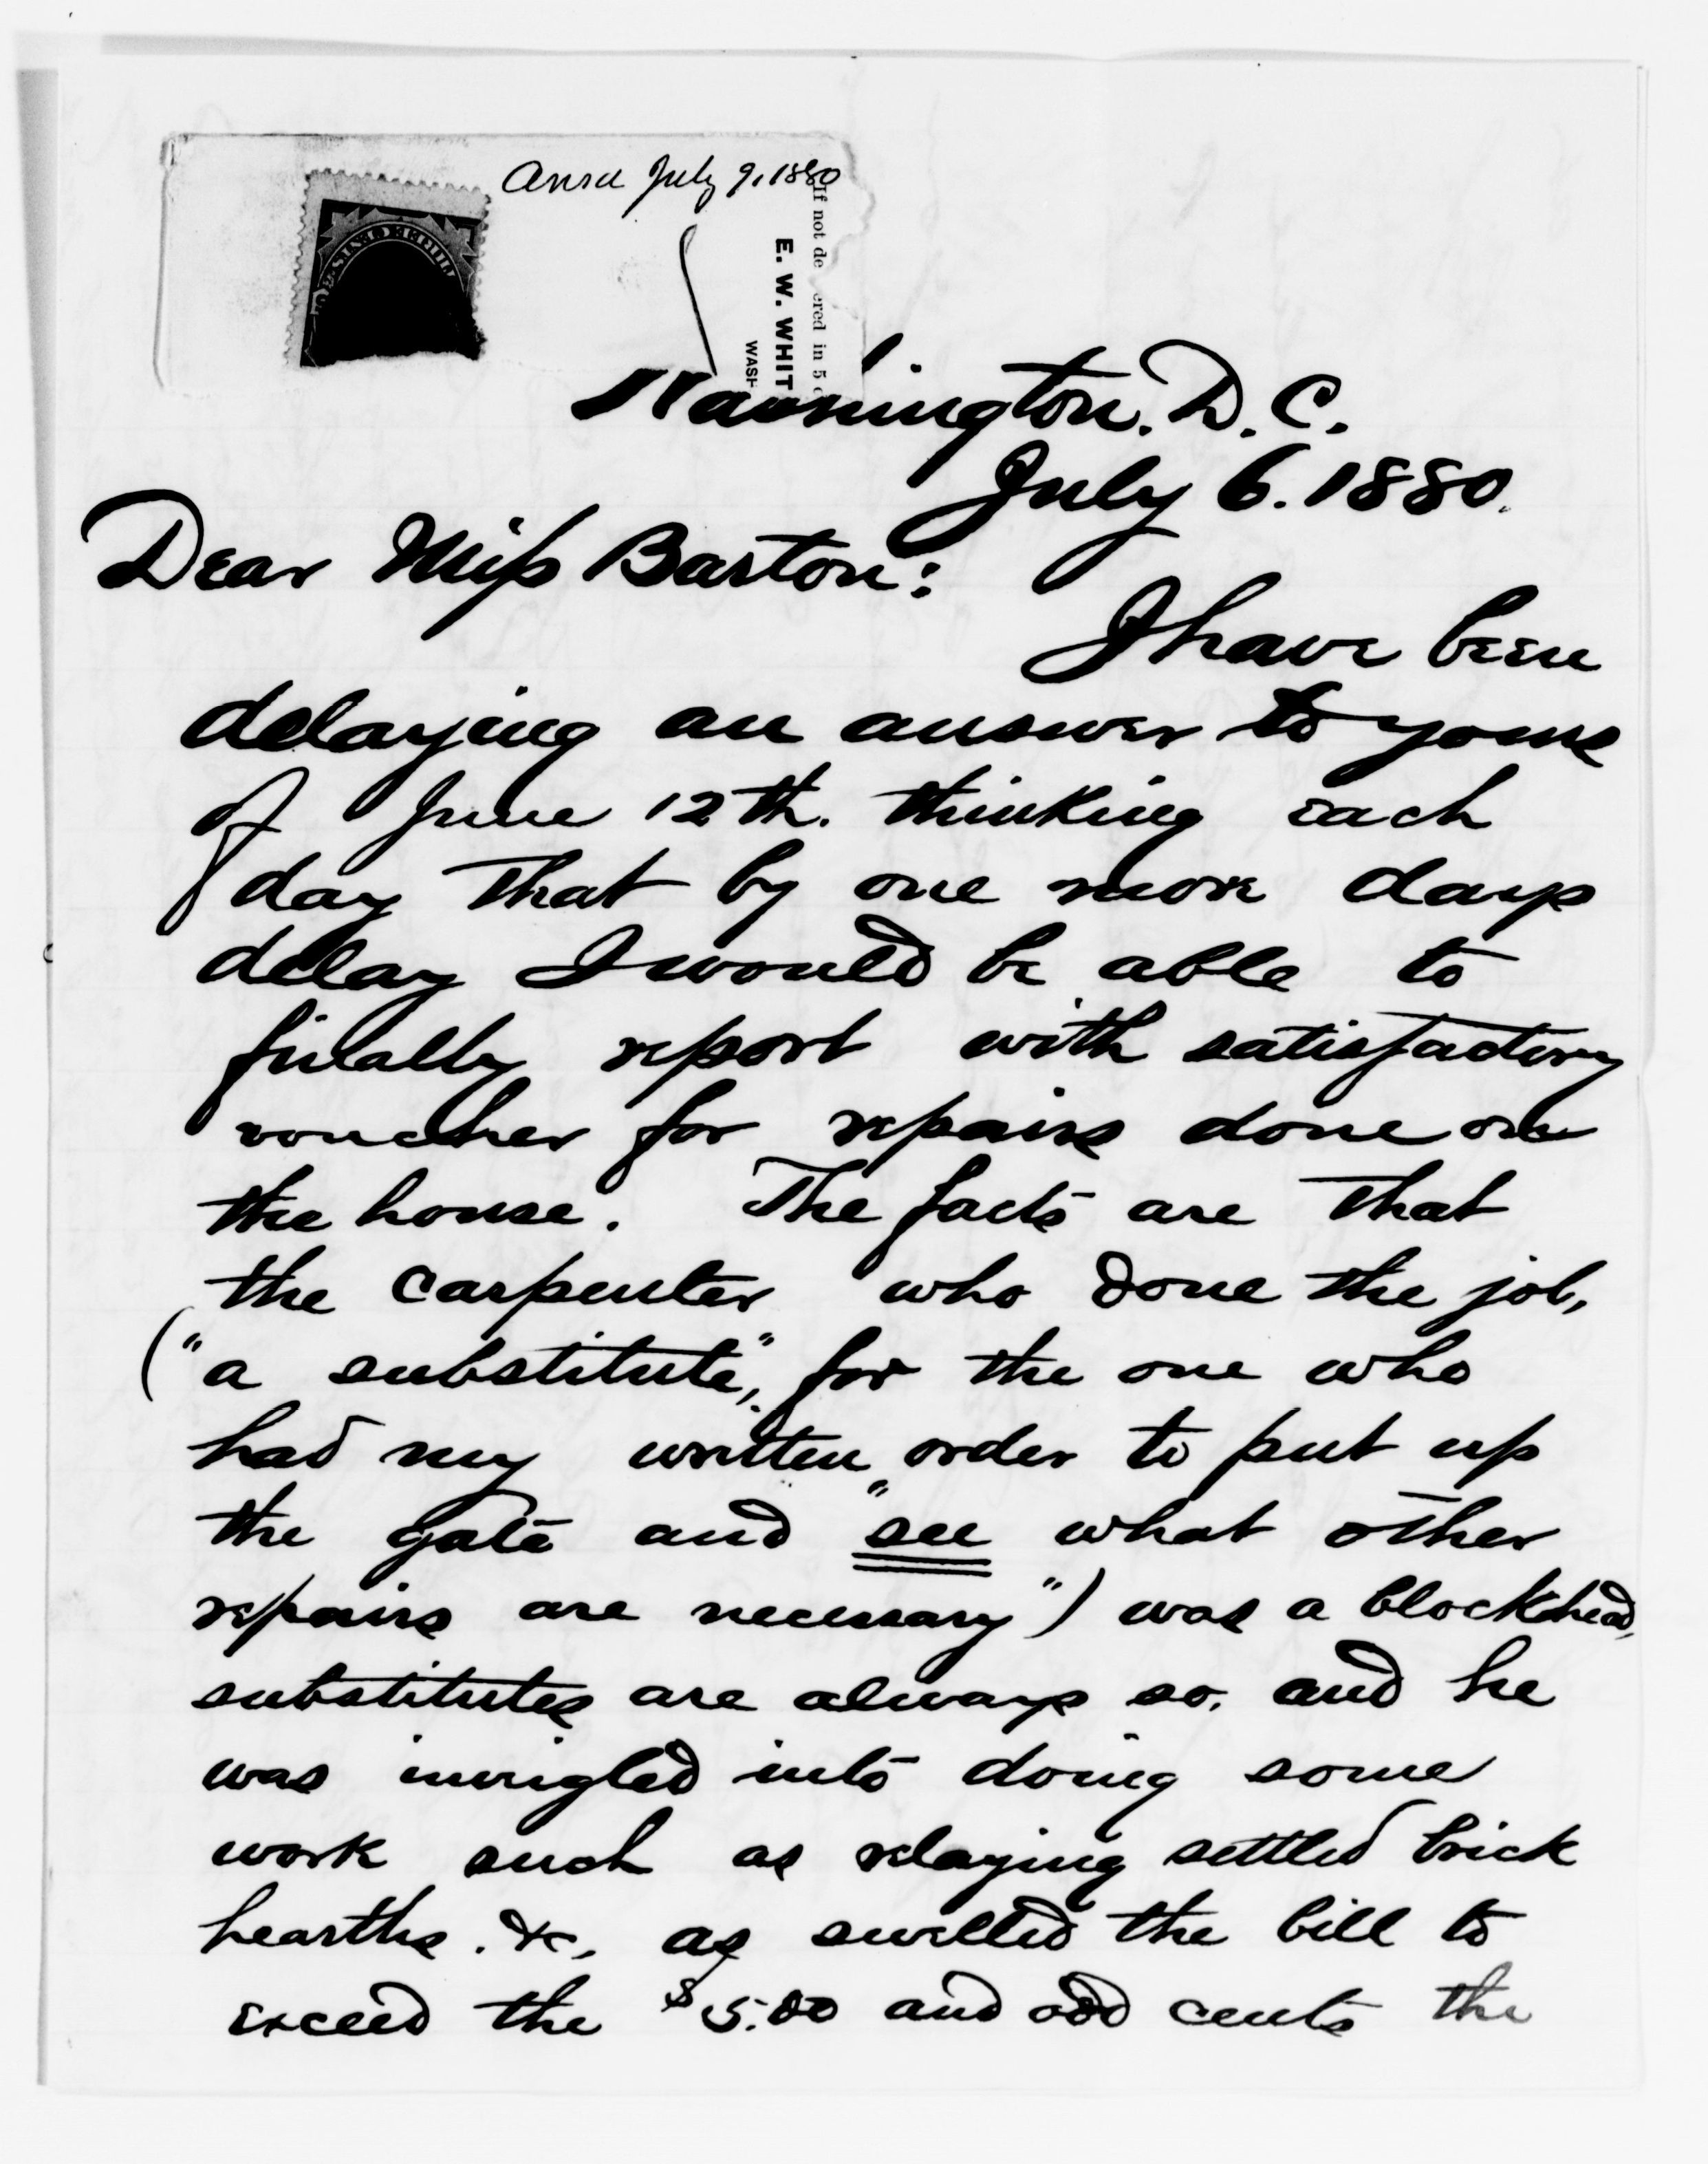 Ansd July 9, 1880
If not de ered in 5
E. W. WHIT
WASH
THREE CENTS
Washington. D. C.
July 6. 1880.
Dear Miss Barton:
I have been
delaying an answer to yours
of June 12th. thinking each
day that by one more days
delay I would be able to
finally report with satisfactory
voucher for repairs done on
the house. The facts are that
the carpenter who done the job,
("a substitute", for the one who
had my written order to put up
the gate and "see what other
repairs are necessary") was a blockhead,
substitutes are always so. and he
was inveigled into doing some
work such as relaying settled brick
hearths. &c, as swelled the bill to
exceed the $5.00 and odd cents the